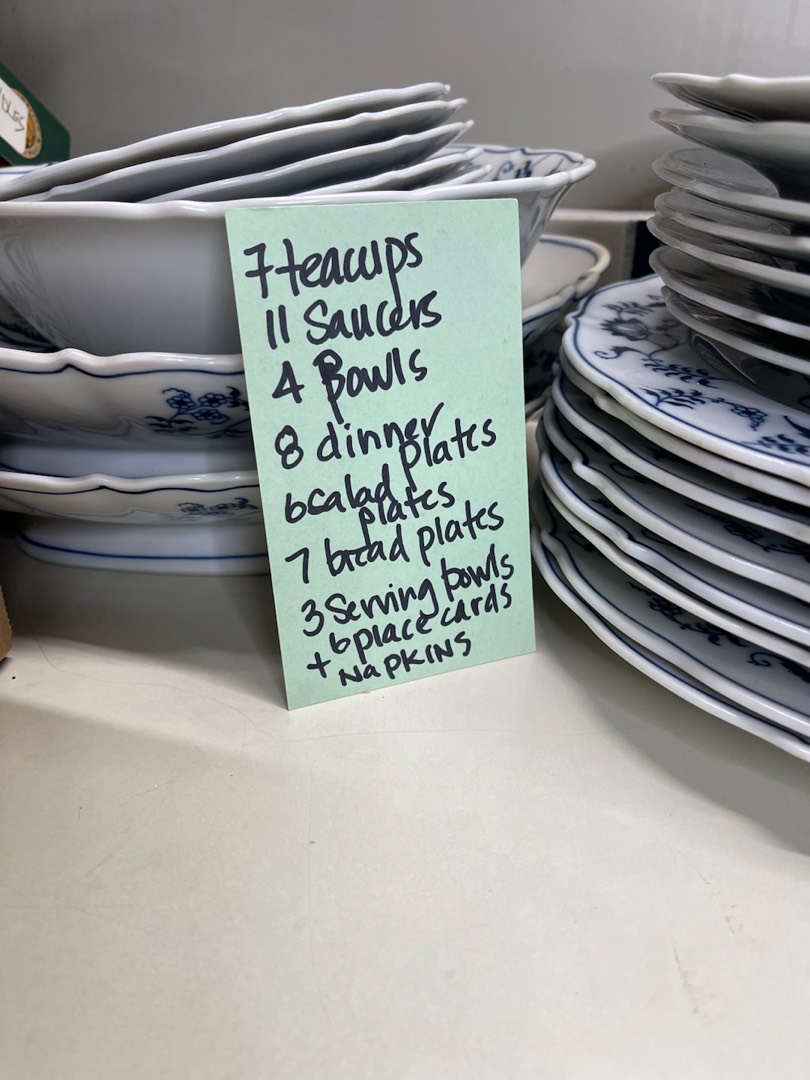 7 teacups
11 Saucers
4 Bowls
8 dinner
plates
6 salad
plates
7 bread plates
3 Serving bowls
+ 6 place cards
NAPKINS